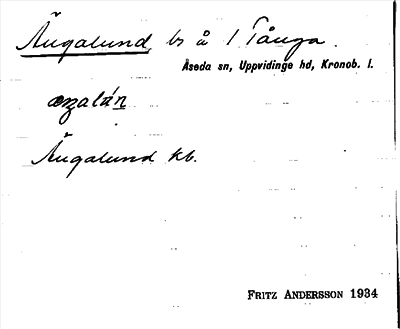 Ängalund, bs å 1 Tånga.
Åseda sn, Uppvidinge hd, Kronob. l.
æŋalún
Ängalund kb.
FRITZ ANDERSSON 1934